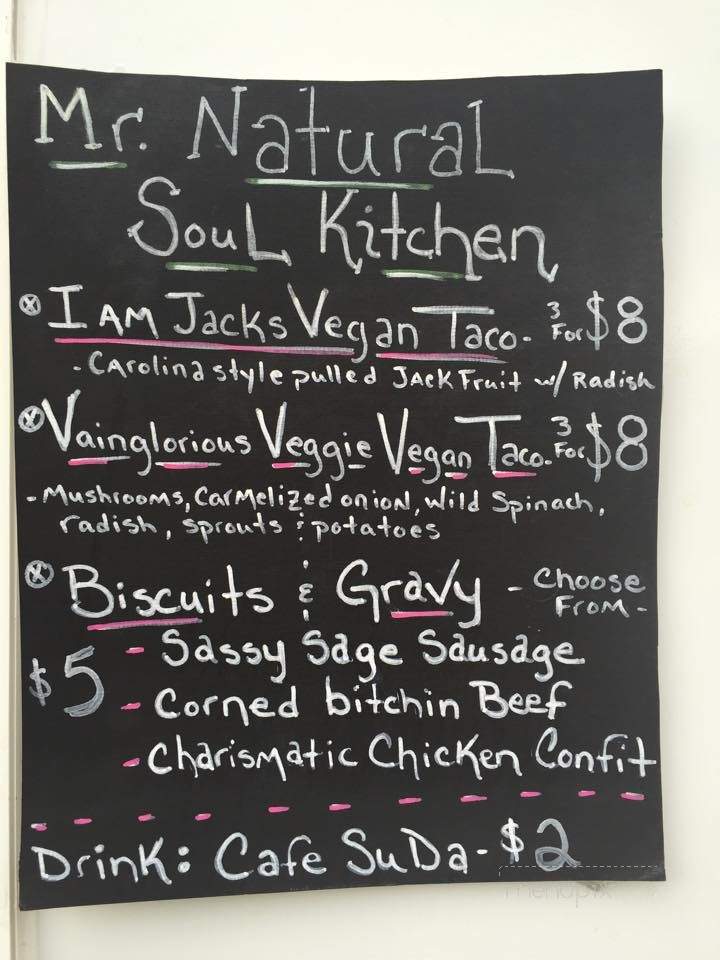 Mr. Natural
Soul Kitchen
I Am Jacks Vegan Taco - 3 For $8
- Carolina style pulled Jack Fruit w/ Radish
Vainglorious Veggie Vegan Taco - 3 For $8
- Mushrooms, Carmelized onion, Wild Spinach,
radish, sprouts & potatoes
Biscuits & Gravy - Choose From -
$5 - Sassy Sage Sausage
- Corned bitchin Beef
- Charismatic Chicken Confit
Drink: Cafe SuDa - $2
menupix